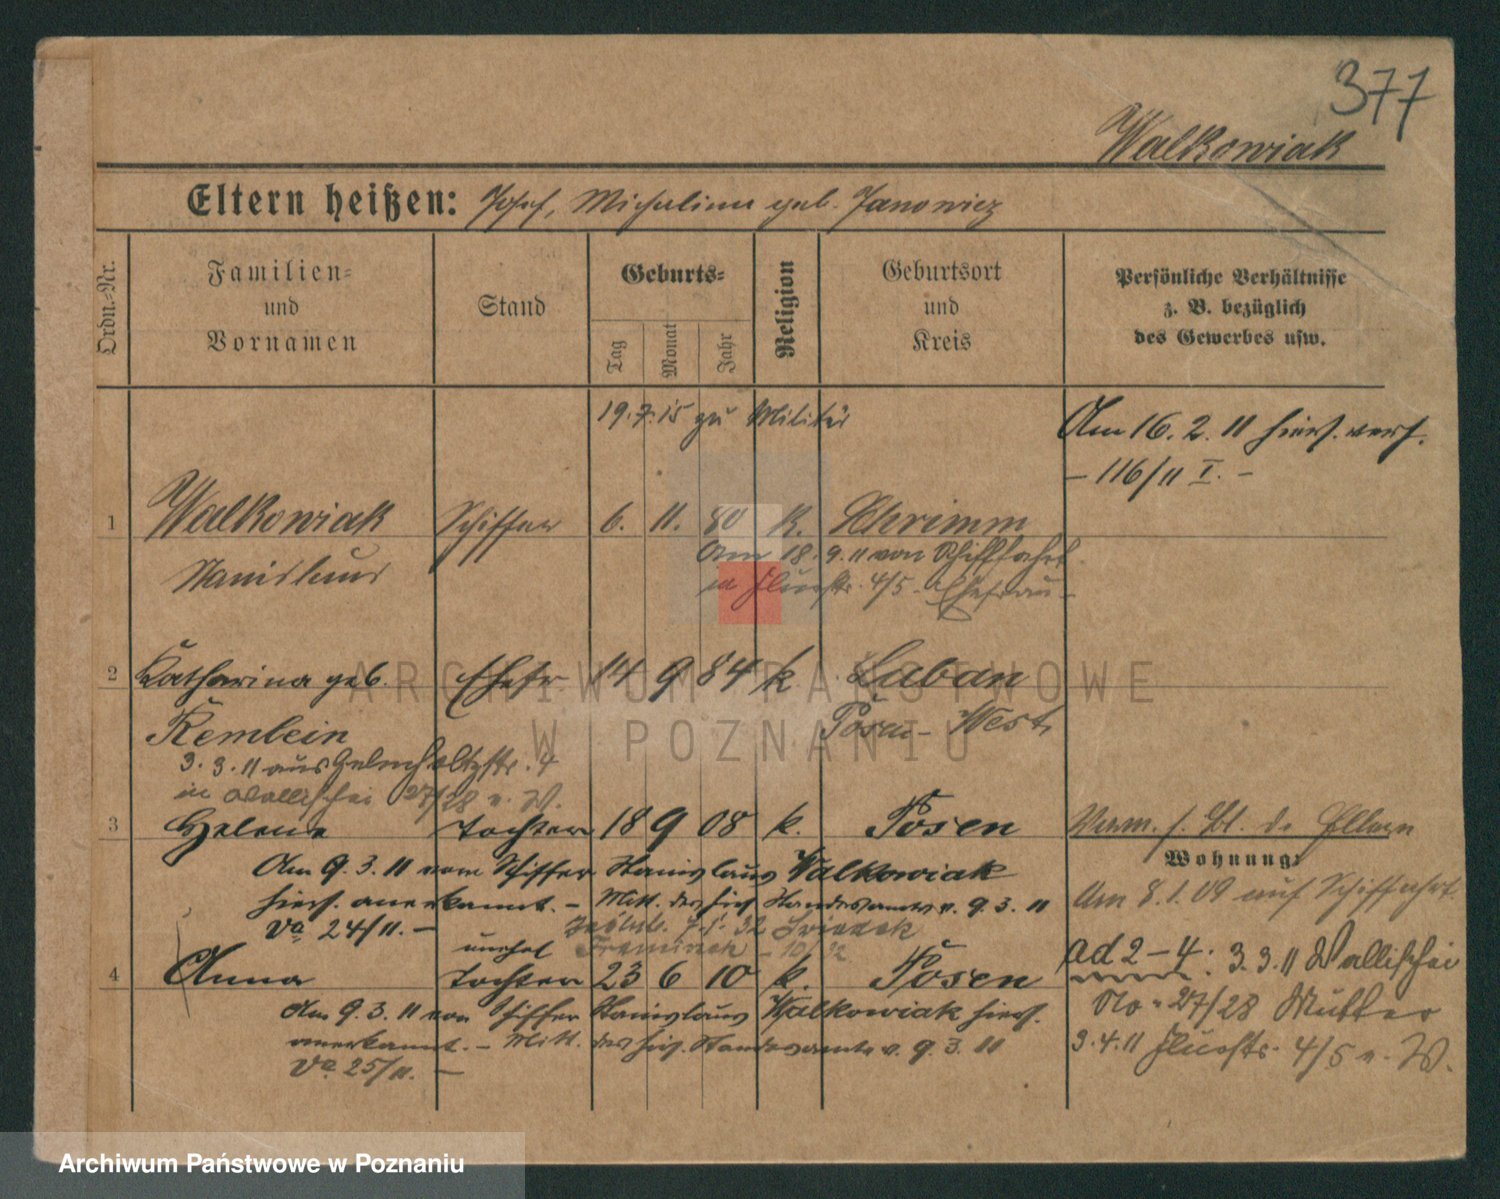 377
Walkowiak
Eltern heißen: Josef, Michalina geb. Janowicz
Ordn.-Nr.
Familien-
und
Vornamen
Stand
Geburts-
Tag
Monat
Jahr
Religion
Geburtsort
und
Kreis
Persönliche Verhältnisse
z. B. bezüglich
des Gewerbes usw.
19.7.15 zu Militär
Am 16.2.11 hies. verh.
- 116/11 I. -
1 Walkowiak Schiffer 6. 11. 80 k. Schrimm
Stanislaus
Am 18.9.11 von Schifffahrt
in 4/5 - Ehefrau -
2 Katharina geb. Ehefr 14 9 84 k Laban
Rembein Posen-West
3.3.11 aus 4
in Wallischei 27/28 v. W.
3 Helene Tochter 18 9 08 k. Posen
Verm. s. Bl. d. Eltern
Wohnung:
Am 9.3.11 vom Schiffer Stanislaus Walkowiak
hies. anerkannt. - Mitt. des hies Standesamts v. 9.3.11
Va 24/11. -
Am 8.1.09 auf Schiffahrt
unehel
4 Anna Tochter 23 6 10 k. Posen
ad 2-4: 3.3.11 Wallischei
No 27/28 Mutter
3.4.11 4/5 v. W.
Am 9.3.11 von Schiffer Stanislaus Walkowiak hies.
anerkannt. - Mitt. des hies. Standesamts v. 9.3.11
Va 25/11. -
ARCHIWUM PAŃSTWOWE
W POZNANIU
Archiwum Państwowe w Poznaniu